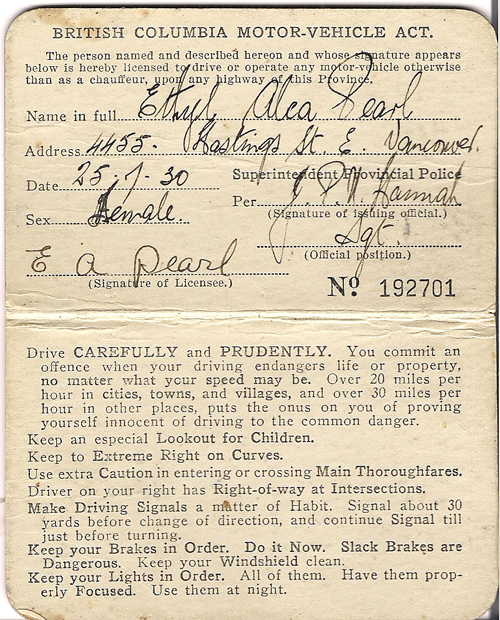 BRITISH COLUMBIA MOTOR-VEHICLE ACT.
The person named and described hereon and whose signature appears
below is hereby licensed to drive or operate any motor-vehicle otherwise
than as a chauffeur, upon any highway of this Province.
Name in full Ethyl Alea Pearl
Address 4455. Hastings St. E. Vancouver.
Date 25-1-30 Superintendent Provincial Police
Sex Female. Per Hannah
(Signature of issuing official.)
Sgt.
E A Pearl (Official position.)
(Signature of Licensee.) No. 192701
Drive CAREFULLY and PRUDENTLY. You commit an
offence when your driving endangers life or property,
no matter what your speed may be. Over 20 miles per
hour in cities, towns, and villages, and over 30 miles per
hour in other places, puts the onus on you of proving
yourself innocent of driving to the common danger.
Keep an especial Lookout for Children.
Keep to Extreme Right on Curves.
Use extra Caution in entering or crossing Main Thoroughfares.
Driver on your right has Right-of-way at Intersections.
Make Driving Signals a matter of Habit. Signal about 30
yards before change of direction, and continue Signal till
just before turning.
Keep your Brakes in Order. Do it Now. Slack Brakes are
Dangerous. Keep your Windshield clean.
Keep your Lights in Order. All of them. Have them prop-
erly Focused. Use them at night.